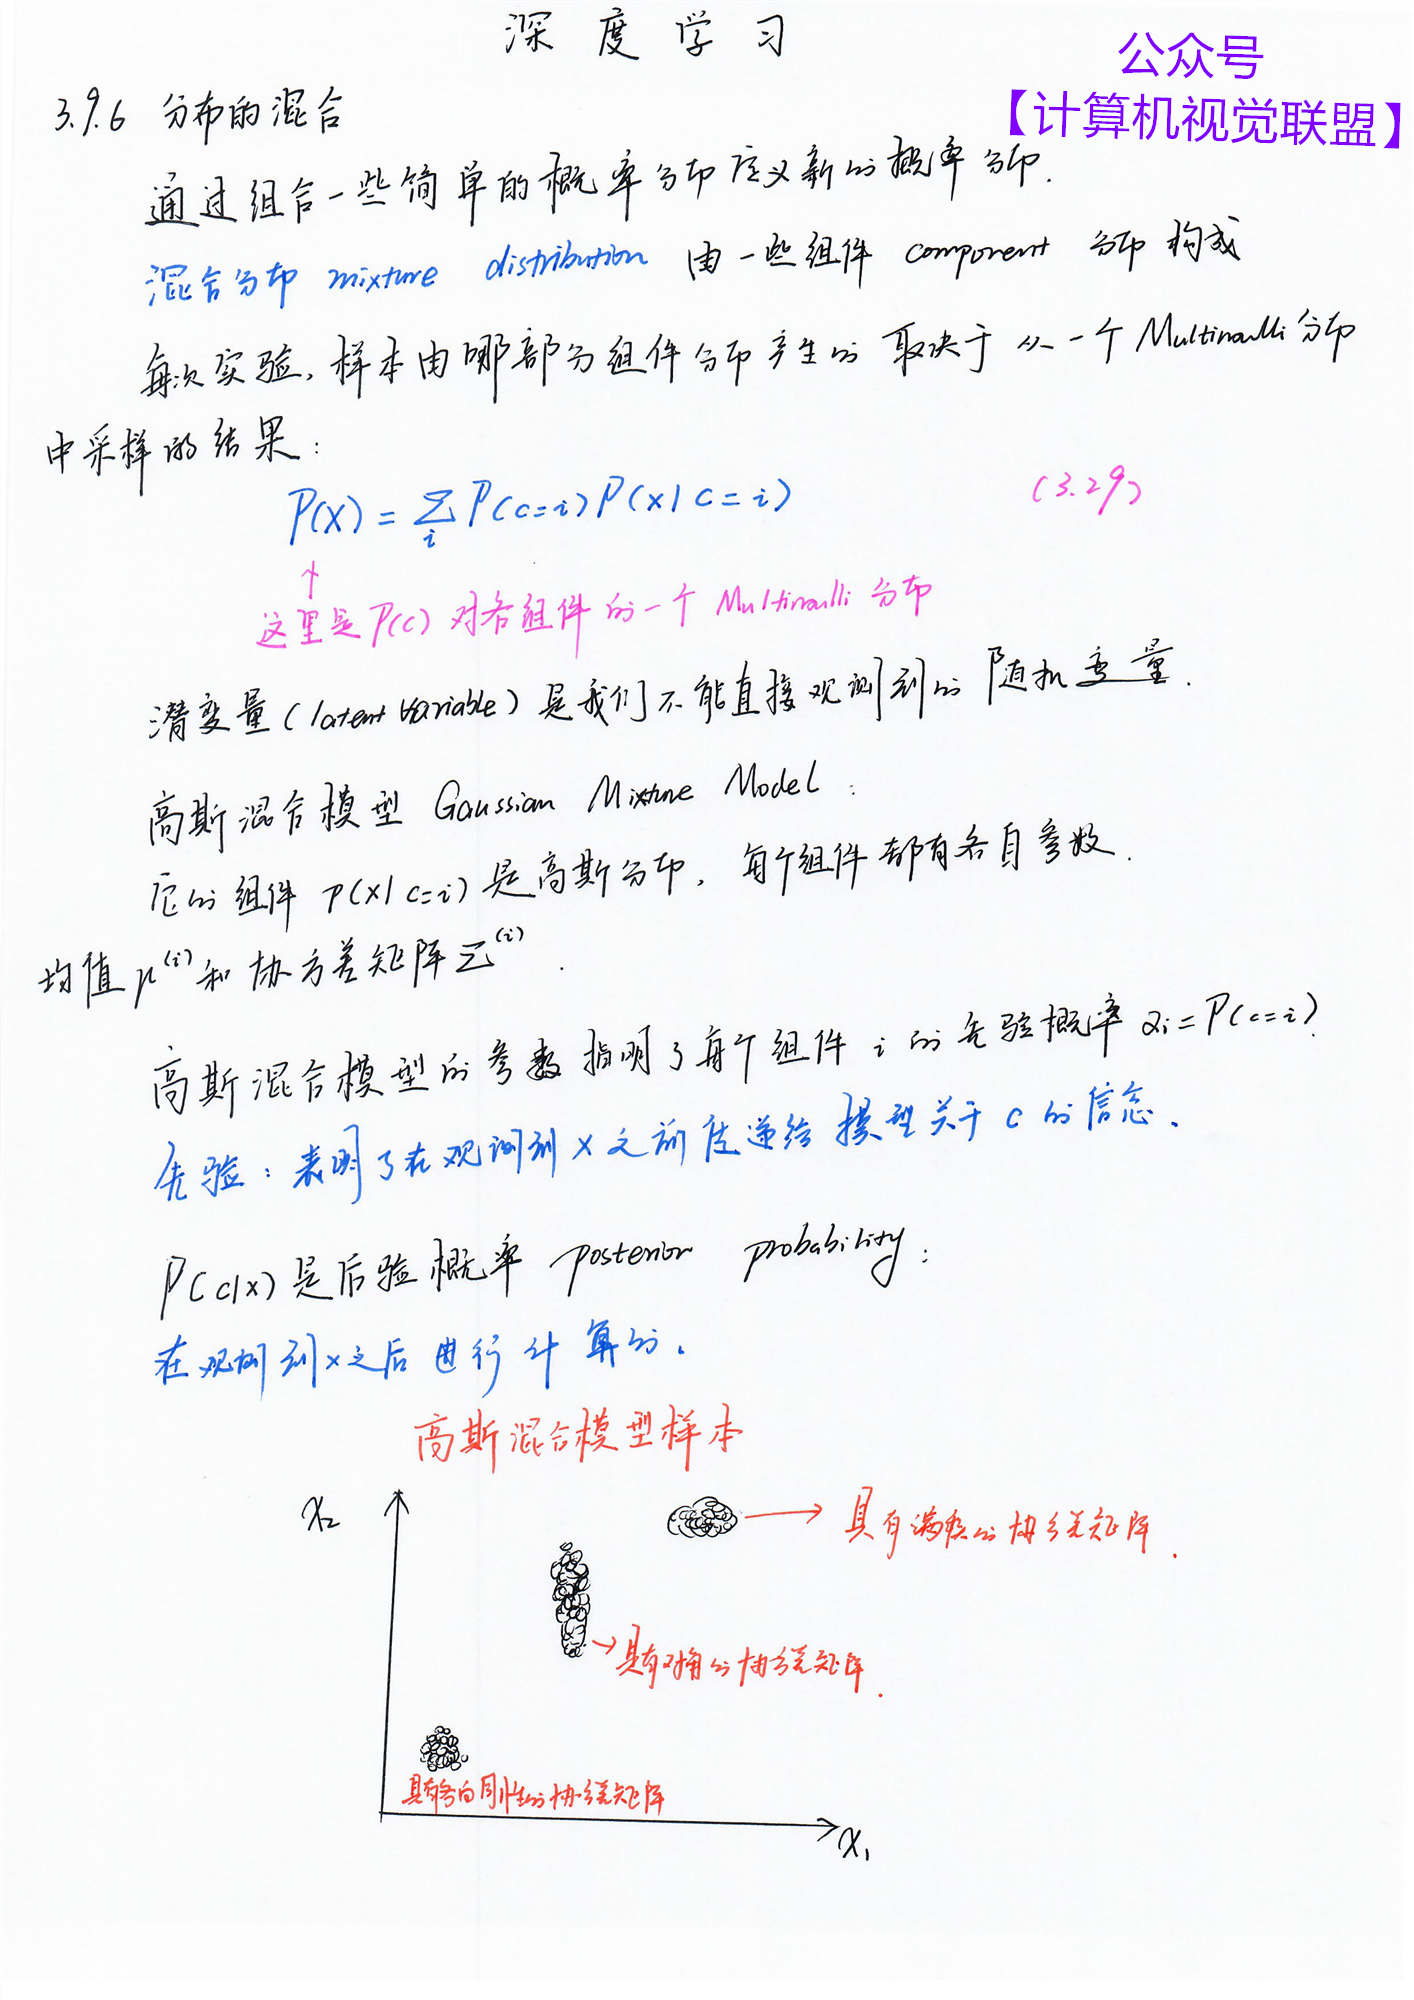 深度学习
公众号
【计算机视觉联盟】
3.9.6 分布的混合
通过组合一些简单的概率分布定义新的概率分布.
混合分布 mixture distribution 由一些组件 component 分布构成
每次实验,样本由哪部分组件分布产生的 取决于从一个 Multinoulli 分布
中采样的结果:
P(X) = Σ_i P(c=i) P(x|c=i) (3.29)
↑
这里是 P(c) 对各组件的一个 Multinoulli 分布
潜变量(latent variable)是我们不能直接观测到的随机变量.
高斯混合模型 Gaussian Mixture Model:
它的组件 p(x|c=i) 是高斯分布,每个组件都有各自参数.
均值 μ^(i) 和协方差矩阵 Σ^(i).
高斯混合模型的参数指明了每个组件 i 的先验概率 αi = P(c=i).
先验:表明了在观测到 x 之前传递给模型关于 c 的信念.
P(c|x) 是后验概率 posterior probability:
在观测到 x 之后进行计算的.
高斯混合模型样本
x₂
→ 具有满秩的协方差矩阵.
→ 具有对角的协方差矩阵.
具有各向同性的协方差矩阵
x₁